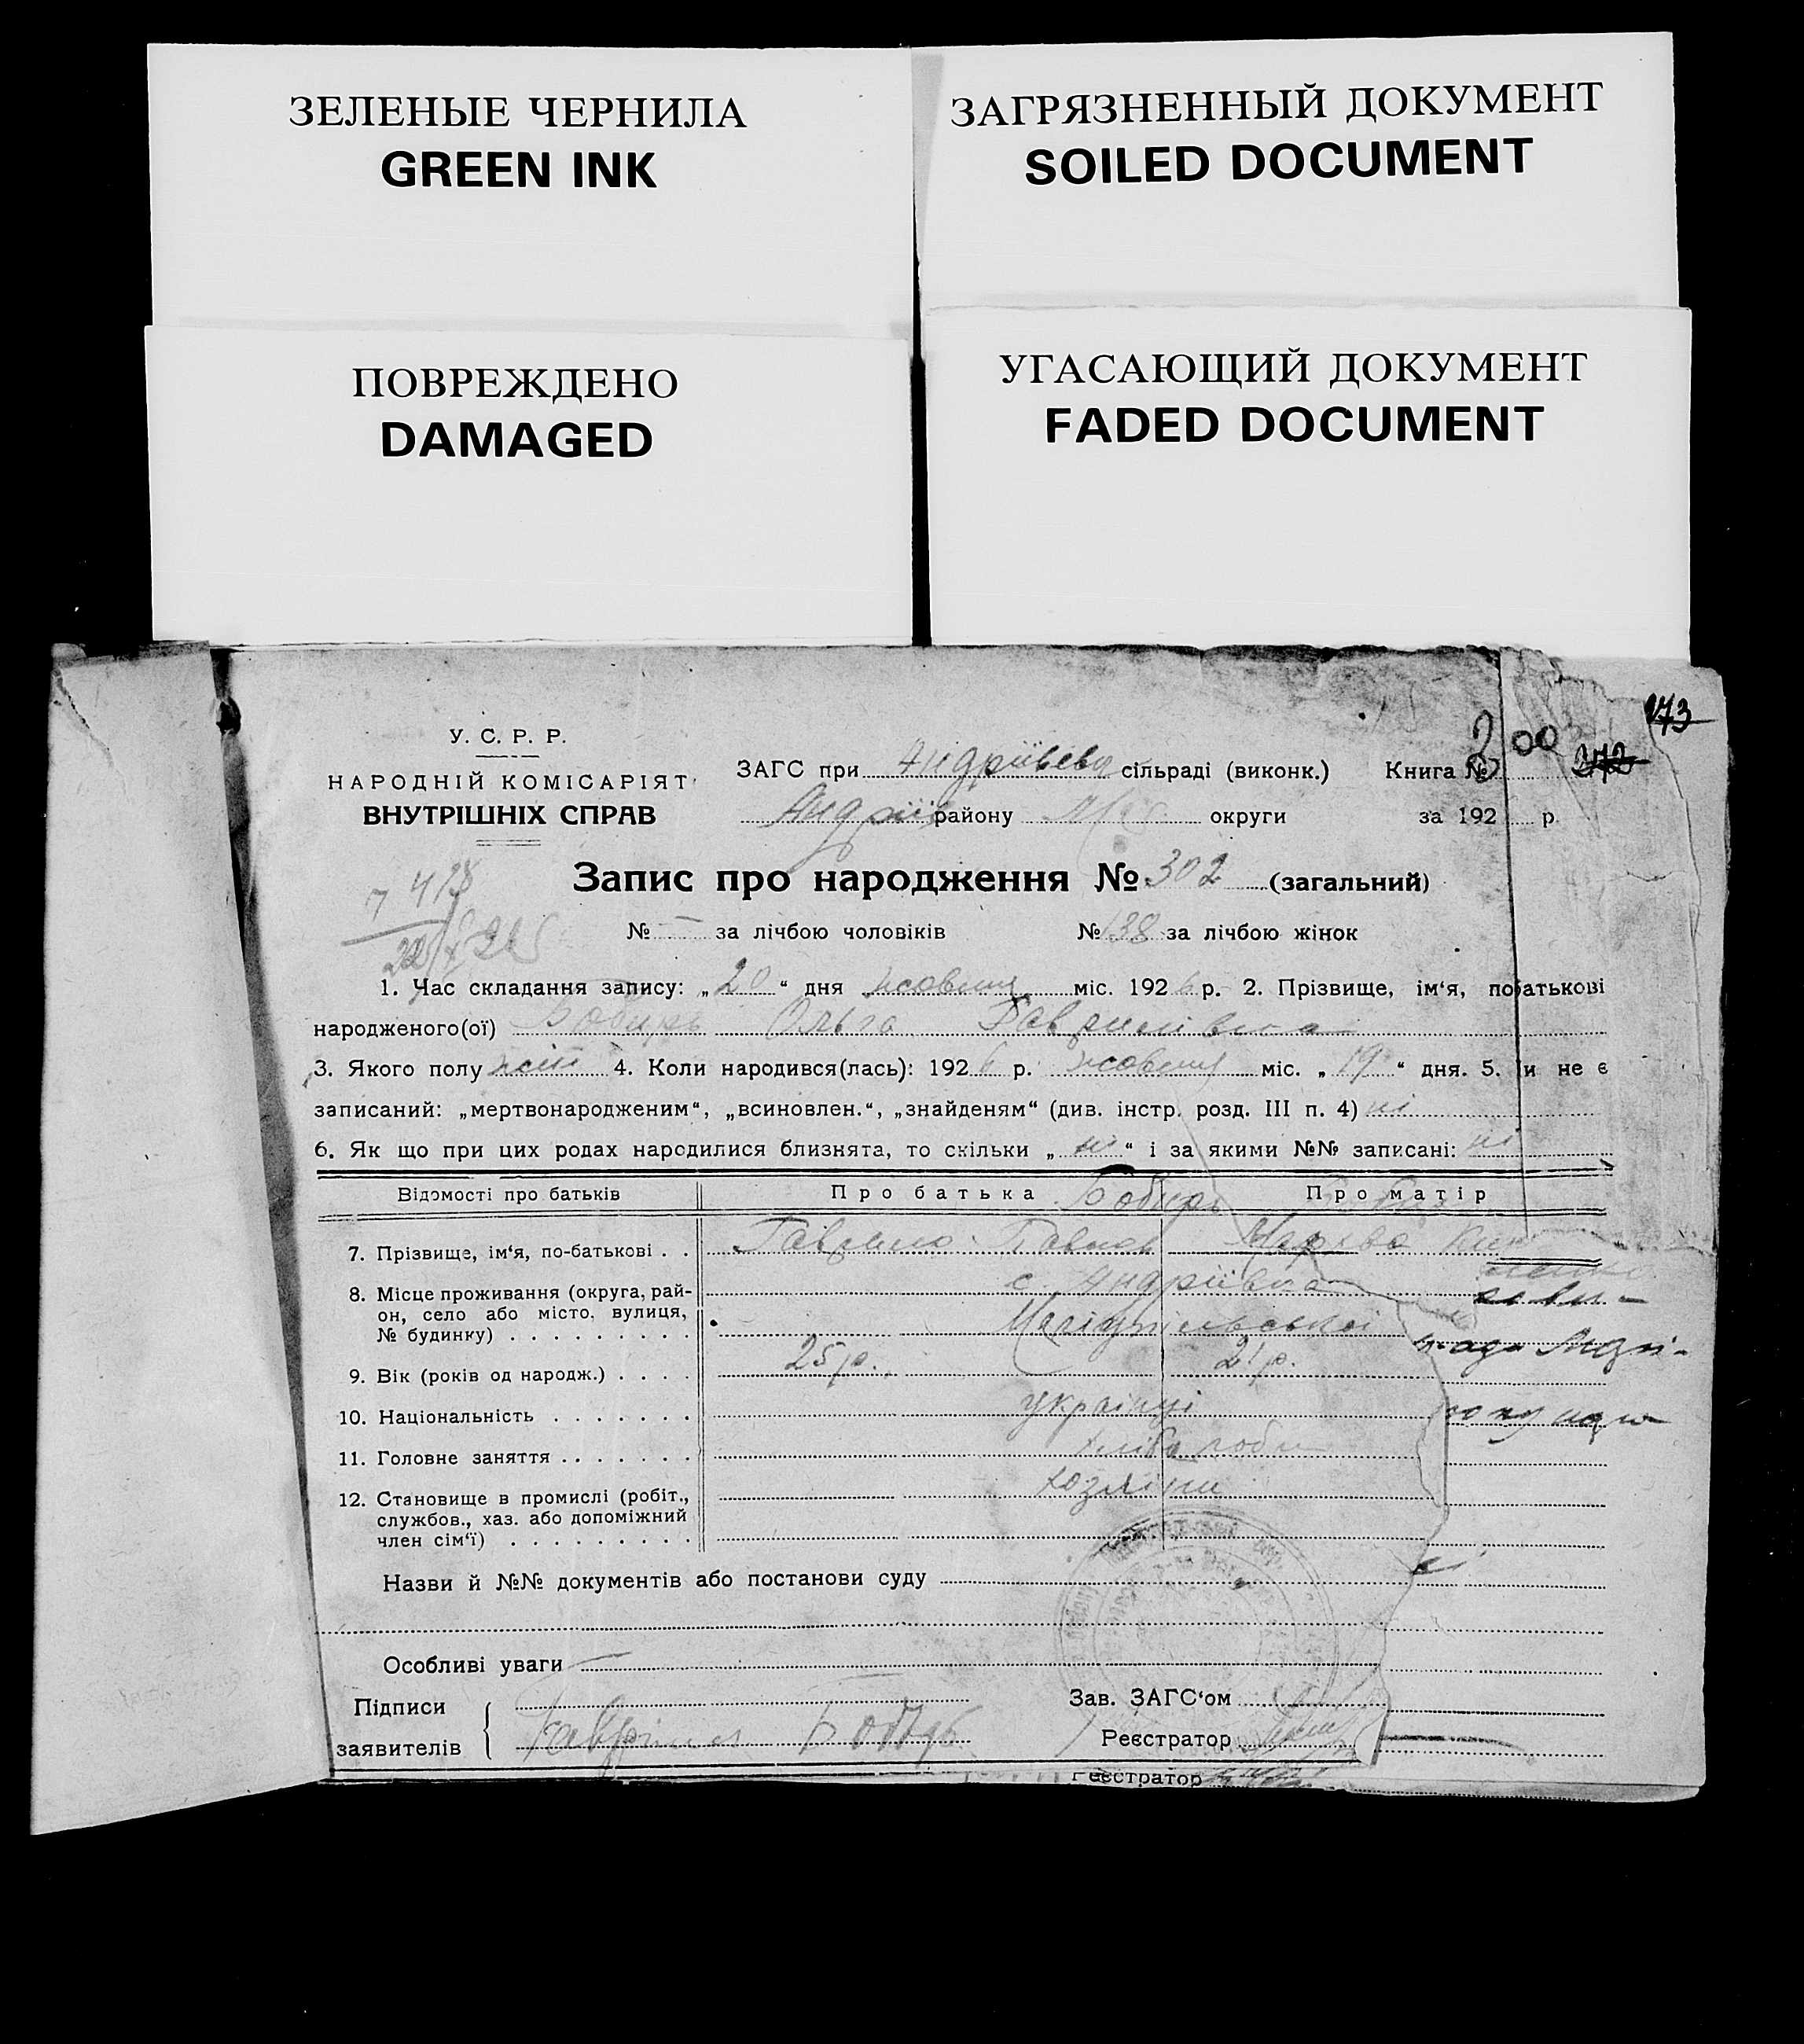 ЗЕЛЕНЫЕ ЧЕРНИЛА
GREEN INK
ЗАГРЯЗНЕННЫЙ ДОКУМЕНТ
SOILED DOCUMENT
ПОВРЕЖДЕНО
DAMAGED
УГАСАЮЩИЙ ДОКУМЕНТ
FADED DOCUMENT
173
У. С. Р. Р.
НАРОДНІЙ КОМІСАРІЯТ
ВНУТРІШНІХ СПРАВ
200
ЗАГС при сільраді (виконк.) Книга № 172
Андрії району округи за 192 р.
Запис про народження № 302 (загальний)
№ — за лічбою чоловіків № 138 за лічбою жінок
1. Час складання запису: „20“ дня жовтня міс. 1926 р. 2. Прізвище, ім‘я, побатькові
народженого(ої) Бобирь Ольга Гаврилівна
3. Якого полу жін 4. Коли народився(лась): 1926 р. жовтня міс. „19“ дня. 5. Чи не є
записаний: „мертвонародженим“, „всиновлен.“, „знайденям“ (див. інстр. розд. III п. 4) ні
6. Як що при цих родах народилися близнята, то скільки „ні“ і за якими №№ записані: ні
Відомості про батьків Про батька Бобирь Про матір
7. Прізвище, ім‘я, по-батькові . . Гаврило Павлов Марфа
8. Місце проживання (округа, рай-
он, село або місто, вулиця,
№ будинку) . . . . . . . . .
с. Андріївка
Маріупільської
9. Вік (років од народж.) . . . . 25 р. 21 р.
10. Національність . . . . . . . українці
11. Головне заняття . . . . . . . хлібороби
12. Становище в промислі (робіт.,
службов., хаз. або допоміжний
член сім‘ї) . . . . . . . . .
хозяїни
Назви й №№ документів або постанови суду
Особливі уваги —
Підписи
заявителів
Бобирь
Зав. ЗАГС‘ом
Реєстратор
Реєстратор